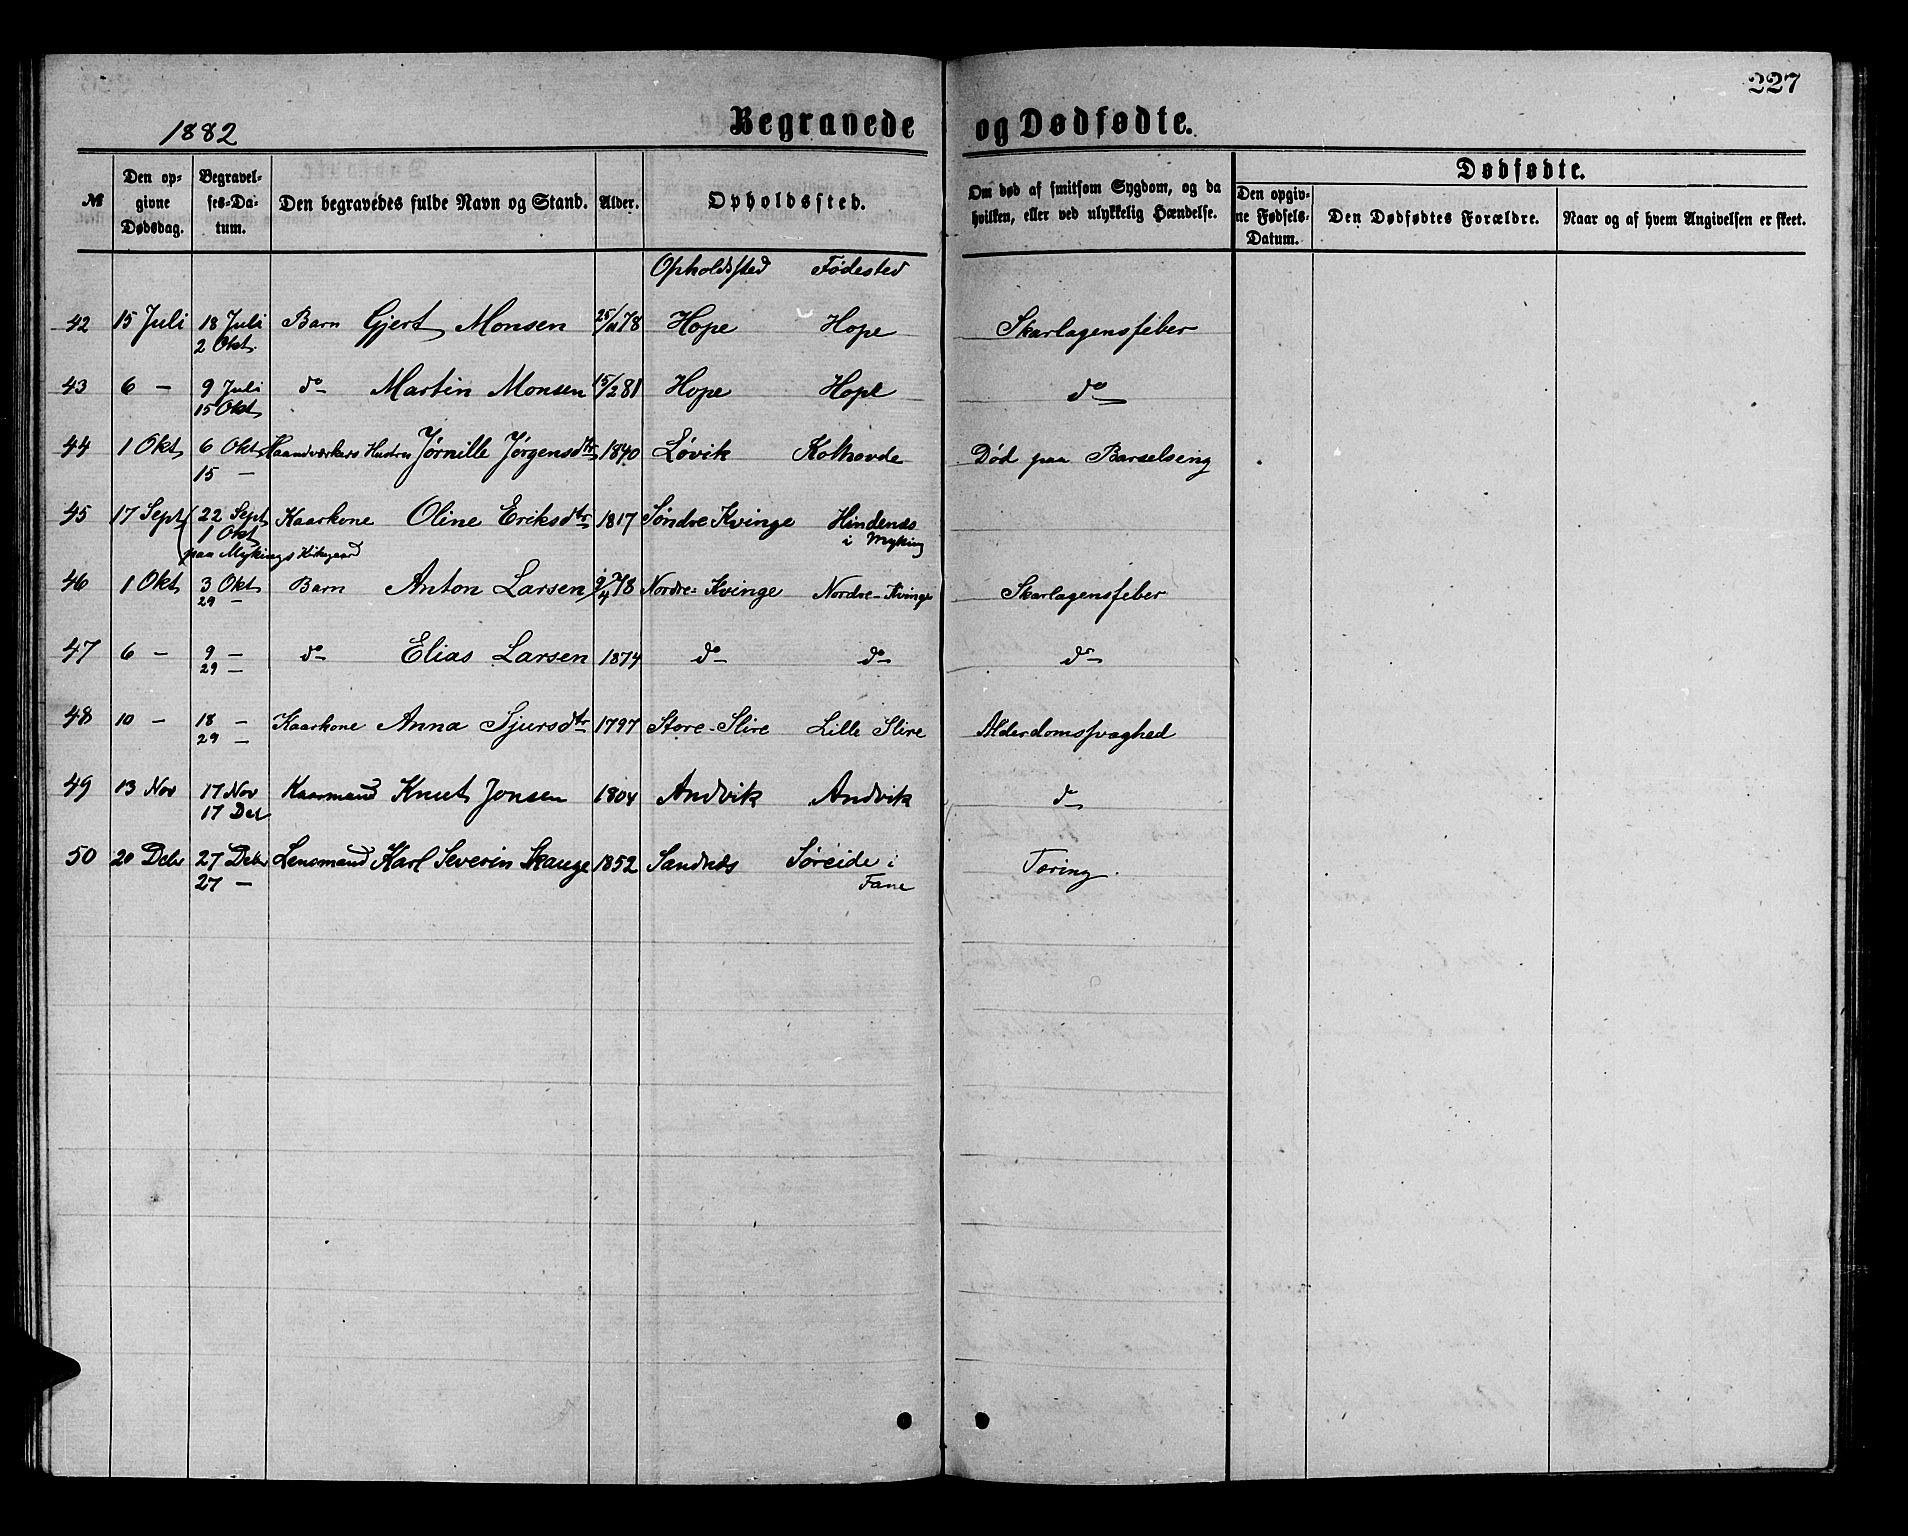 227
1882 Begravede og Dødfødte.
№ Den opgivne Dødsdag. Begravelses-Datum. Den begravedes fulde Navn og Stand. Alder. Opholdssted. Om død af smitsom Sygdom, og da hvilken, eller ved ulykkelig Hændelse. Dødfødte. Den opgivne Fødsels-Datum. Den Dødfødtes Forældre. Naar og af hvem Angivelsen er skeet.
Opholdssted Fødested
42 15 Juli 18 Juli Barn Gjert Monsen 25/11 78 Hope Hope Skarlagensfeber
2 Okt.
43 6 — 9 Juli do Martin Monsen 15/2 81 Hope Hope do
15 Okt
44 1 Okt 6 Okt Haandværkers Hustru Jørnille Jørgensdtr 1840 Løvik Kolhovde Død paa Barselseng
15 —
45 17 Sept 22 Sept Kaarkone Oline Eriksdtr 1817 Søndre Kvinge Hindenæs
1 Okt i Myking
paa Mykings Kirkegaard
46 1 Okt 3 Okt Barn Anton Larsen 9/4 78 Nordre-Kvinge Nordre-Kvinge Skarlagensfeber
29 —
47 6 — 9 — do Elias Larsen 1874 do do do
29 —
48 10 — 18 — Kaarkone Anna Sjursdtr 1797 Store-Slire Lille Slire Alderdomssvaghed
29 —
49 13 Nov 17 Nov Kaarmand Knut Jonsen 1804 Andvik Andvik do
17 Det
50 20 Debr 27 Debr Lensmand Karl Severin Skauge 1852 Sandnæs Søreide i Tæring.
27 — Fane